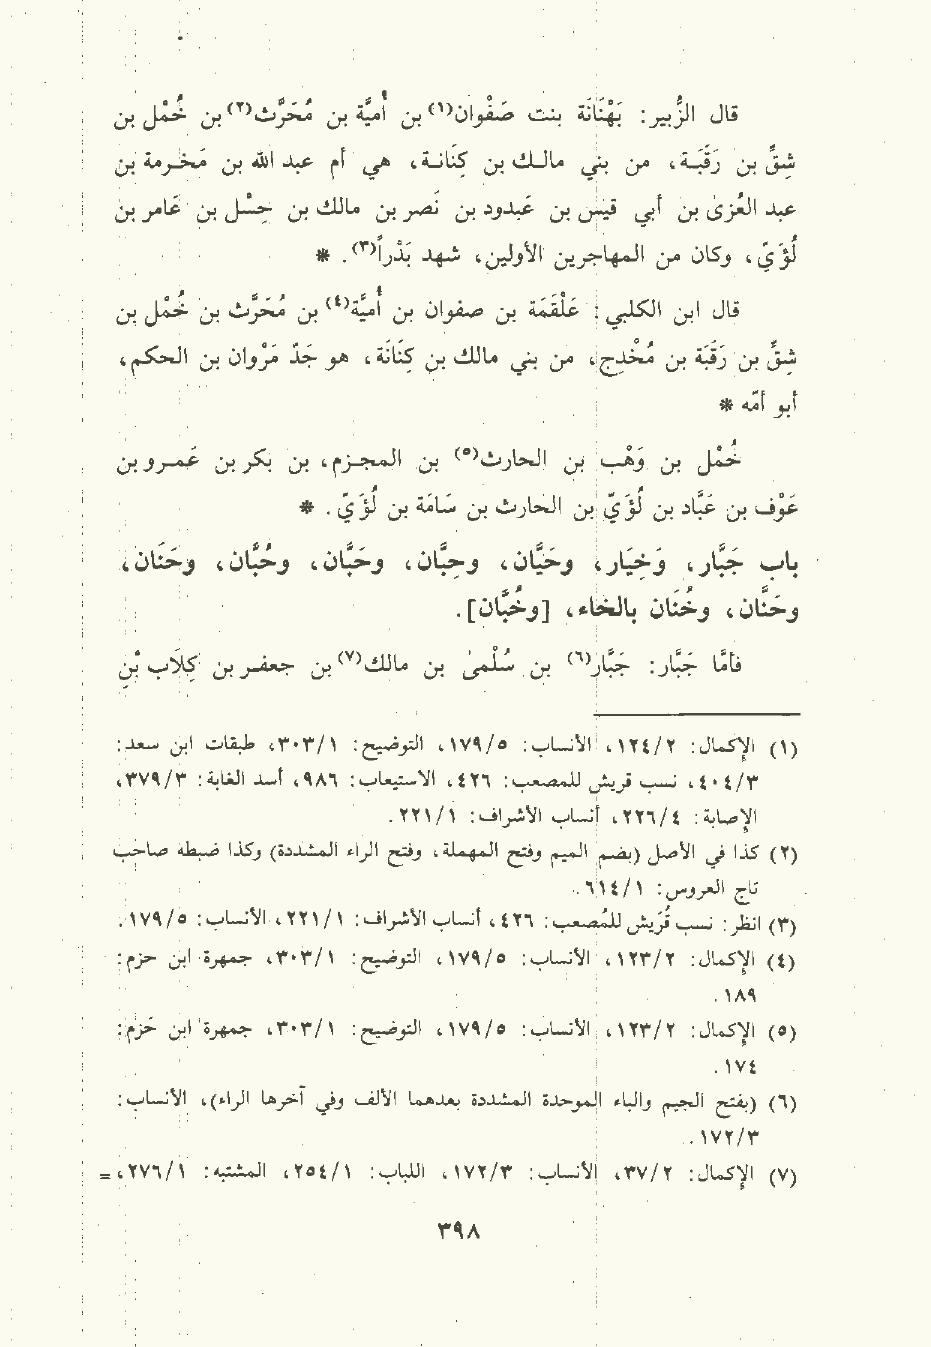 قال الزُّبير: بَهْنَانَة بنت صَفْوان(١) بن أُميَّة بن مُحَرَّث(٢) بن خُمْل بن
شِقّ بن رَقَبَة، من بني مالك بن كِنَانة، هي أم عبد الله بن مَخْرمة بن
عبد العُزى بن أبي قيس بن عَبدود بن نَصر بن مالك بن حِسْل بن عَامر بن
لُؤَيّ، وكان من المهاجرين الأولين، شهد بَدْراً(٣). *
قال ابن الكلبي: عَلْقَمَة بن صفوان بن أُميَّة(٤) بن مُحَرَّث بن خُمْل بن
شِقّ بن رَقَبَة بن مُخْدِج، من بني مالك بن كِنَانَة، وهو جَدّ مَرْوان بن الحكم،
أبو أمّه *
خُمْل بن وَهْب بن الحارث(٥) بن المجزم، بن بكر بن عَمرو بن
عَوْف بن عَبَّاد بن لُؤَيّ بن الحارث بن سَامَة بن لُؤَيّ. *
باب جَبَّار، وَخِيَار، وحَيَّان، وحِبَّان، وحَبَّان، وحُبَّان، وحَنَان،
وحَنَّان، وخُنَان بالخاء، [وخُبَّان].
فأمَّا جَبَّار: جَبَّار(٦) بن سُلْمىٰ بن مالك(٧) بن جعفر بن كِلَاب بْن
(١) الإكمال: ١٢٤/٢، الأنساب: ١٧٩/٥، التوضيح: ٣٠٣/١، طبقات ابن سعد:
٤٠٤/٣، نسب قريش للمصعب: ٤٢٦، الاستيعاب: ٩٨٦، أسد الغابة: ٣٧٩/٣،
الإصابة: ٢٢٦/٤، أنساب الأشراف: ٢٢١/١.
(٢) كذا في الأصل (بضم الميم وفتح المهملة، وفتح الراء المشددة) وكذا ضبطه صاحب
تاج العروس: ٦١٤/١.
(٣) انظر: نسب قُرَيش للمُصعب: ٤٢٦، أنساب الأشراف: ٢٢١/١، الأنساب: ١٧٩/٥.
(٤) الإكمال: ١٢٣/٢، الأنساب: ١٧٩/٥، التوضيح: ٣٠٣/١، جمهرة ابن حزم:
١٨٩.
(٥) الإكمال: ١٢٣/٢، الأنساب: ١٧٩/٥، التوضيح: ٣٠٣/١، جمهرة ابن حَزم:
١٧٤.
(٦) (بفتح الجيم والباء الموحدة المشددة بعدهما الألف وفي آخرها الراء)، الأنساب:
١٧٢/٣.
(٧) الإكمال: ٣٧/٢، الأنساب: ١٧٢/٣، اللباب: ٢٥٤/١، المشتبه: ٢٧٦/١، =
٣٩٨